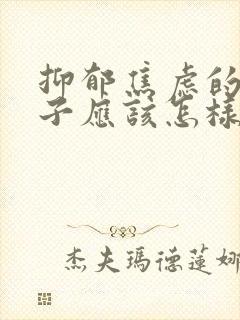 抑郁焦虑的
子应该怎样
杰夫瑪德蓮娜